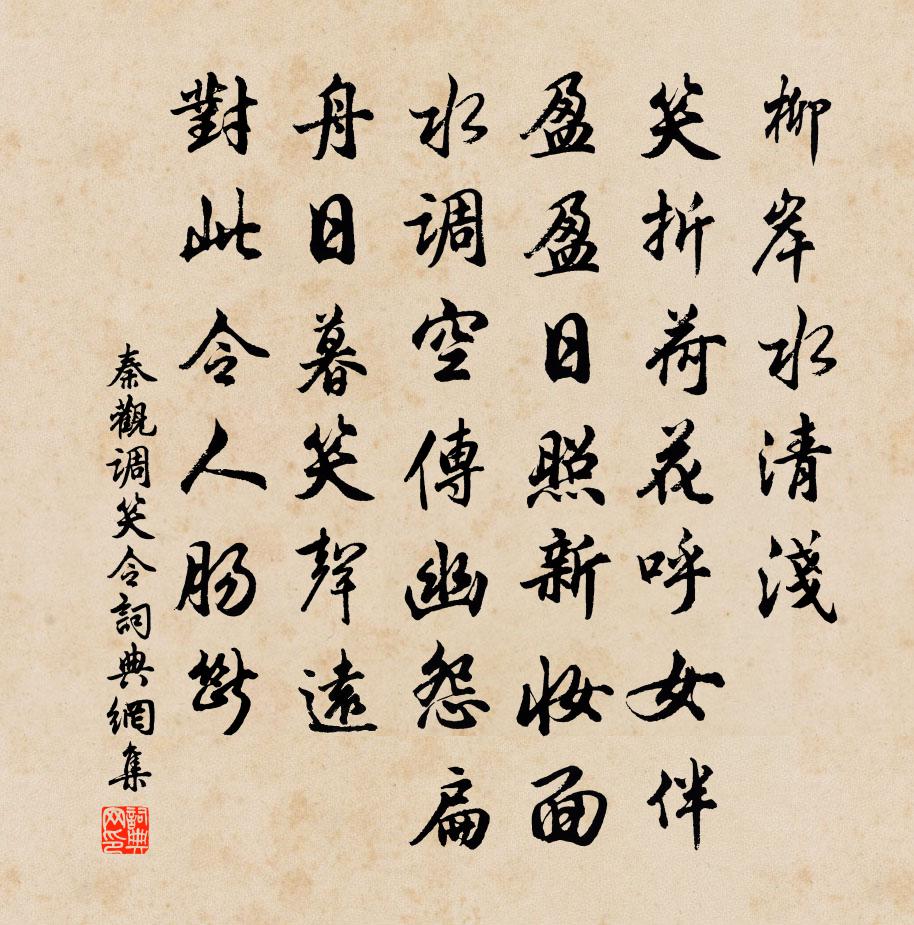 柳岸水清淺
笑折荷花呼女伴
盈盈日照新妝面
水調空傳幽怨扁
舟日暮笑聲遠
對此令人腸斷
秦觀調笑令詞典網集
詞典网印